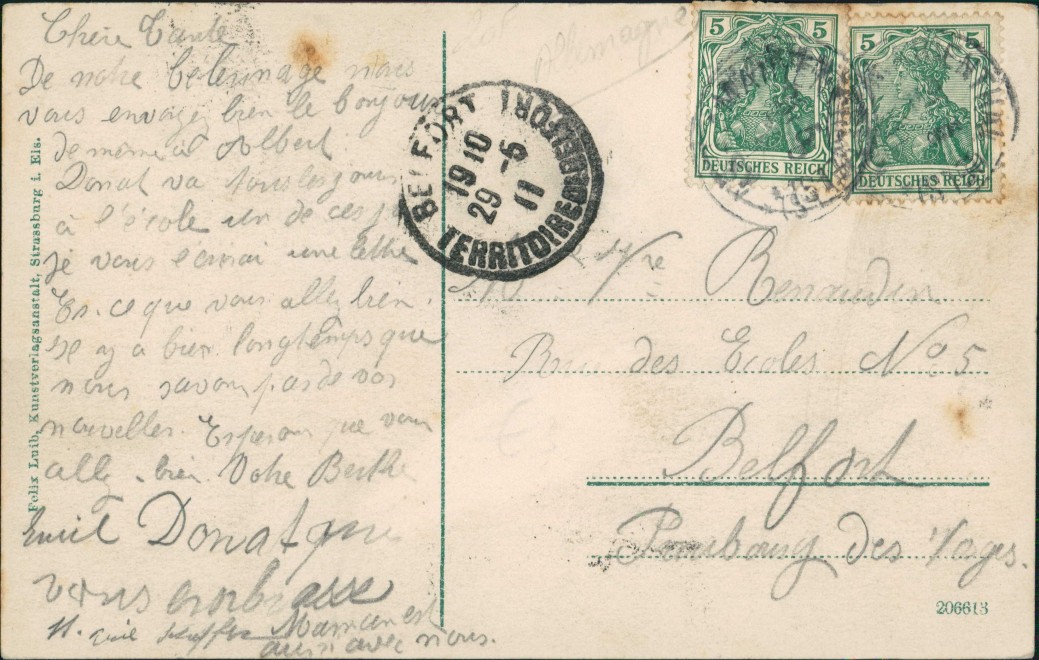 Chère Tante
De notre pelerinage nous
vous envoyez bien le bonjour
de meme a Albert
Donat va tous les jours
à l'école un de ces
je vous une lettre
Es. ce que vous allez bien.
il y a bien longtemps que
nous savons pas de vos
nouvelles. Esperons que vous
alle bien Votre Berthe
Emil Donat que
vous embrasse
Maman est
aussi avec nous.
Felix Luib, Kunstverlagsanstalt, Strassburg i. Els.
Allemagne
5 5
DEUTSCHES REICH
5 5
DEUTSCHES REICH
BELFORT
19 10
29 -5
11
TERRITOIRE DE BELFORT
Renaudin
Rue des Ecoles No 5
Belfort
des Vosges.
206613